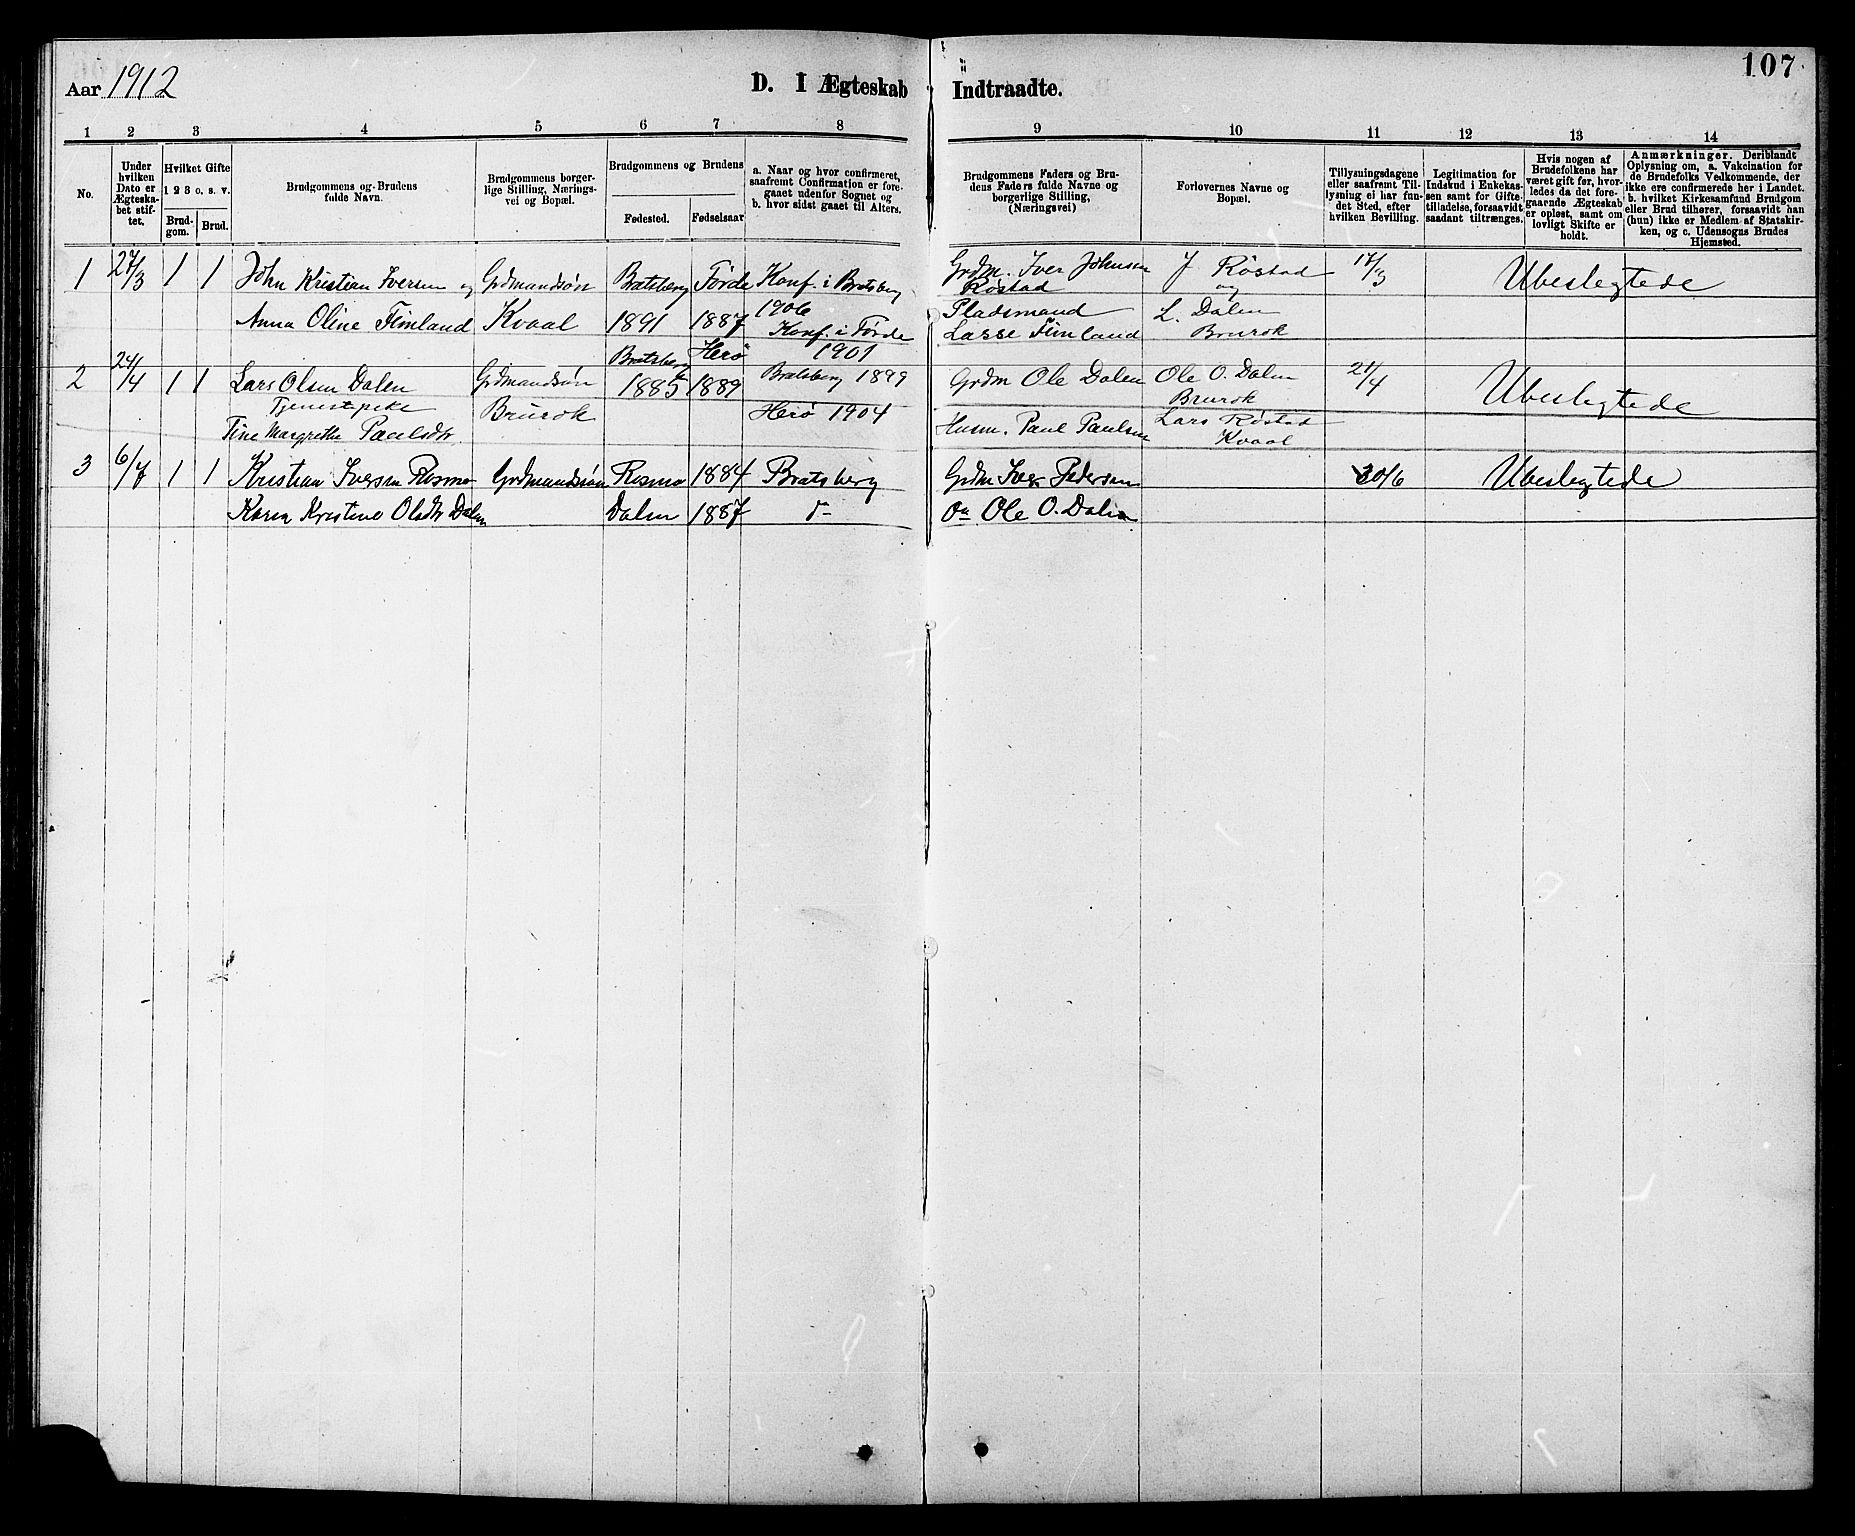 Aar 1912
D. I Ægteskab Indtraadte.
107
1 2 3 4 5 6 7 8 9 10 11 12 13 14
No.
Under hvilken Dato er Ægteska-bet stif-tet.
Hvilket Gifte 1 2 3 o. s. v.
Brud-gom.
Brud.
Brudgommens og Brudens fulde Navn.
Brudgommens borger-lige Stilling, Nærings-vei og Bopæl.
Brudgommens og Brudens
Fødested.
Fødselsaar
a. Naar og hvor confirmeret, saafremt Confirmation er fore-gaaet udenfor Sognet og b. hvor sidst gaaet til Alters.
Brudgommens Faders og Bru-dens Faders fulde Navne og borgerlige Stilling, (Næringsvei)
Forlovernes Navne og Bopæl.
Tillysningsdagene eller saafremt Til-lysning ei har fun-det Sted, efter hvilken Bevilling.
Legitimation for Indskud i Enkekas-sen samt for Gifte-tilladelse, forsaavidt saadant tiltrænges.
Hvis nogen af Brudefolkene har været gift før, hvor-ledes da det fore-gaaende Ægteskab er opløst, samt om lovligt Skifte er holdt.
Anmærkninger. Deriblandt Oplysning om, a. Vakcination for de Brudefolks Vedkommende, der ikke ere confirmerede her i Landet. b. hvilket Kirkesamfund Brudgom eller Brud tilhører, forsaavidt han (hun) ikke er Medlem af Statskir-ken, og c. Udensogns Brudes Hjemsted.
1 27/3 1 1 John Kristian Iversen og Grdmandsøn Bratsberg Førde Konf. i Bratsberg Grdm. Iver Johnsen J Røstad 17/3 Ubeslegtede
1906 Røstad og
Anna Oline Fimland Kvaal 1891 1887 Konf. i Førde Pladsmand L. Dalen
1901 Lasse Fimland Brurok
Bratsberg Herø
2 24/4 1 1 Lars Olsen Dalen Grdmandsøn 1885 1889 Bratsberg 1899 Grdm Ole Dalen Ole O. Dalen 21/4 Ubeslegtede
Tjenestpike Brurok Herø 1904 Brurok
Tine Margrethe Paulsdtr Husm. Paul Paulsen Lars Røstad
Kvaal
3 6/7 1 1 Kristian Iversen Rosmo Grdmandsøn Rosmo 1884 Bratsberg Grdm Iver Pedersen 30/6 Ubeslegtede
Karen Kristine Olsdtr Dalen Dalen 1887 Ole O. Dalen